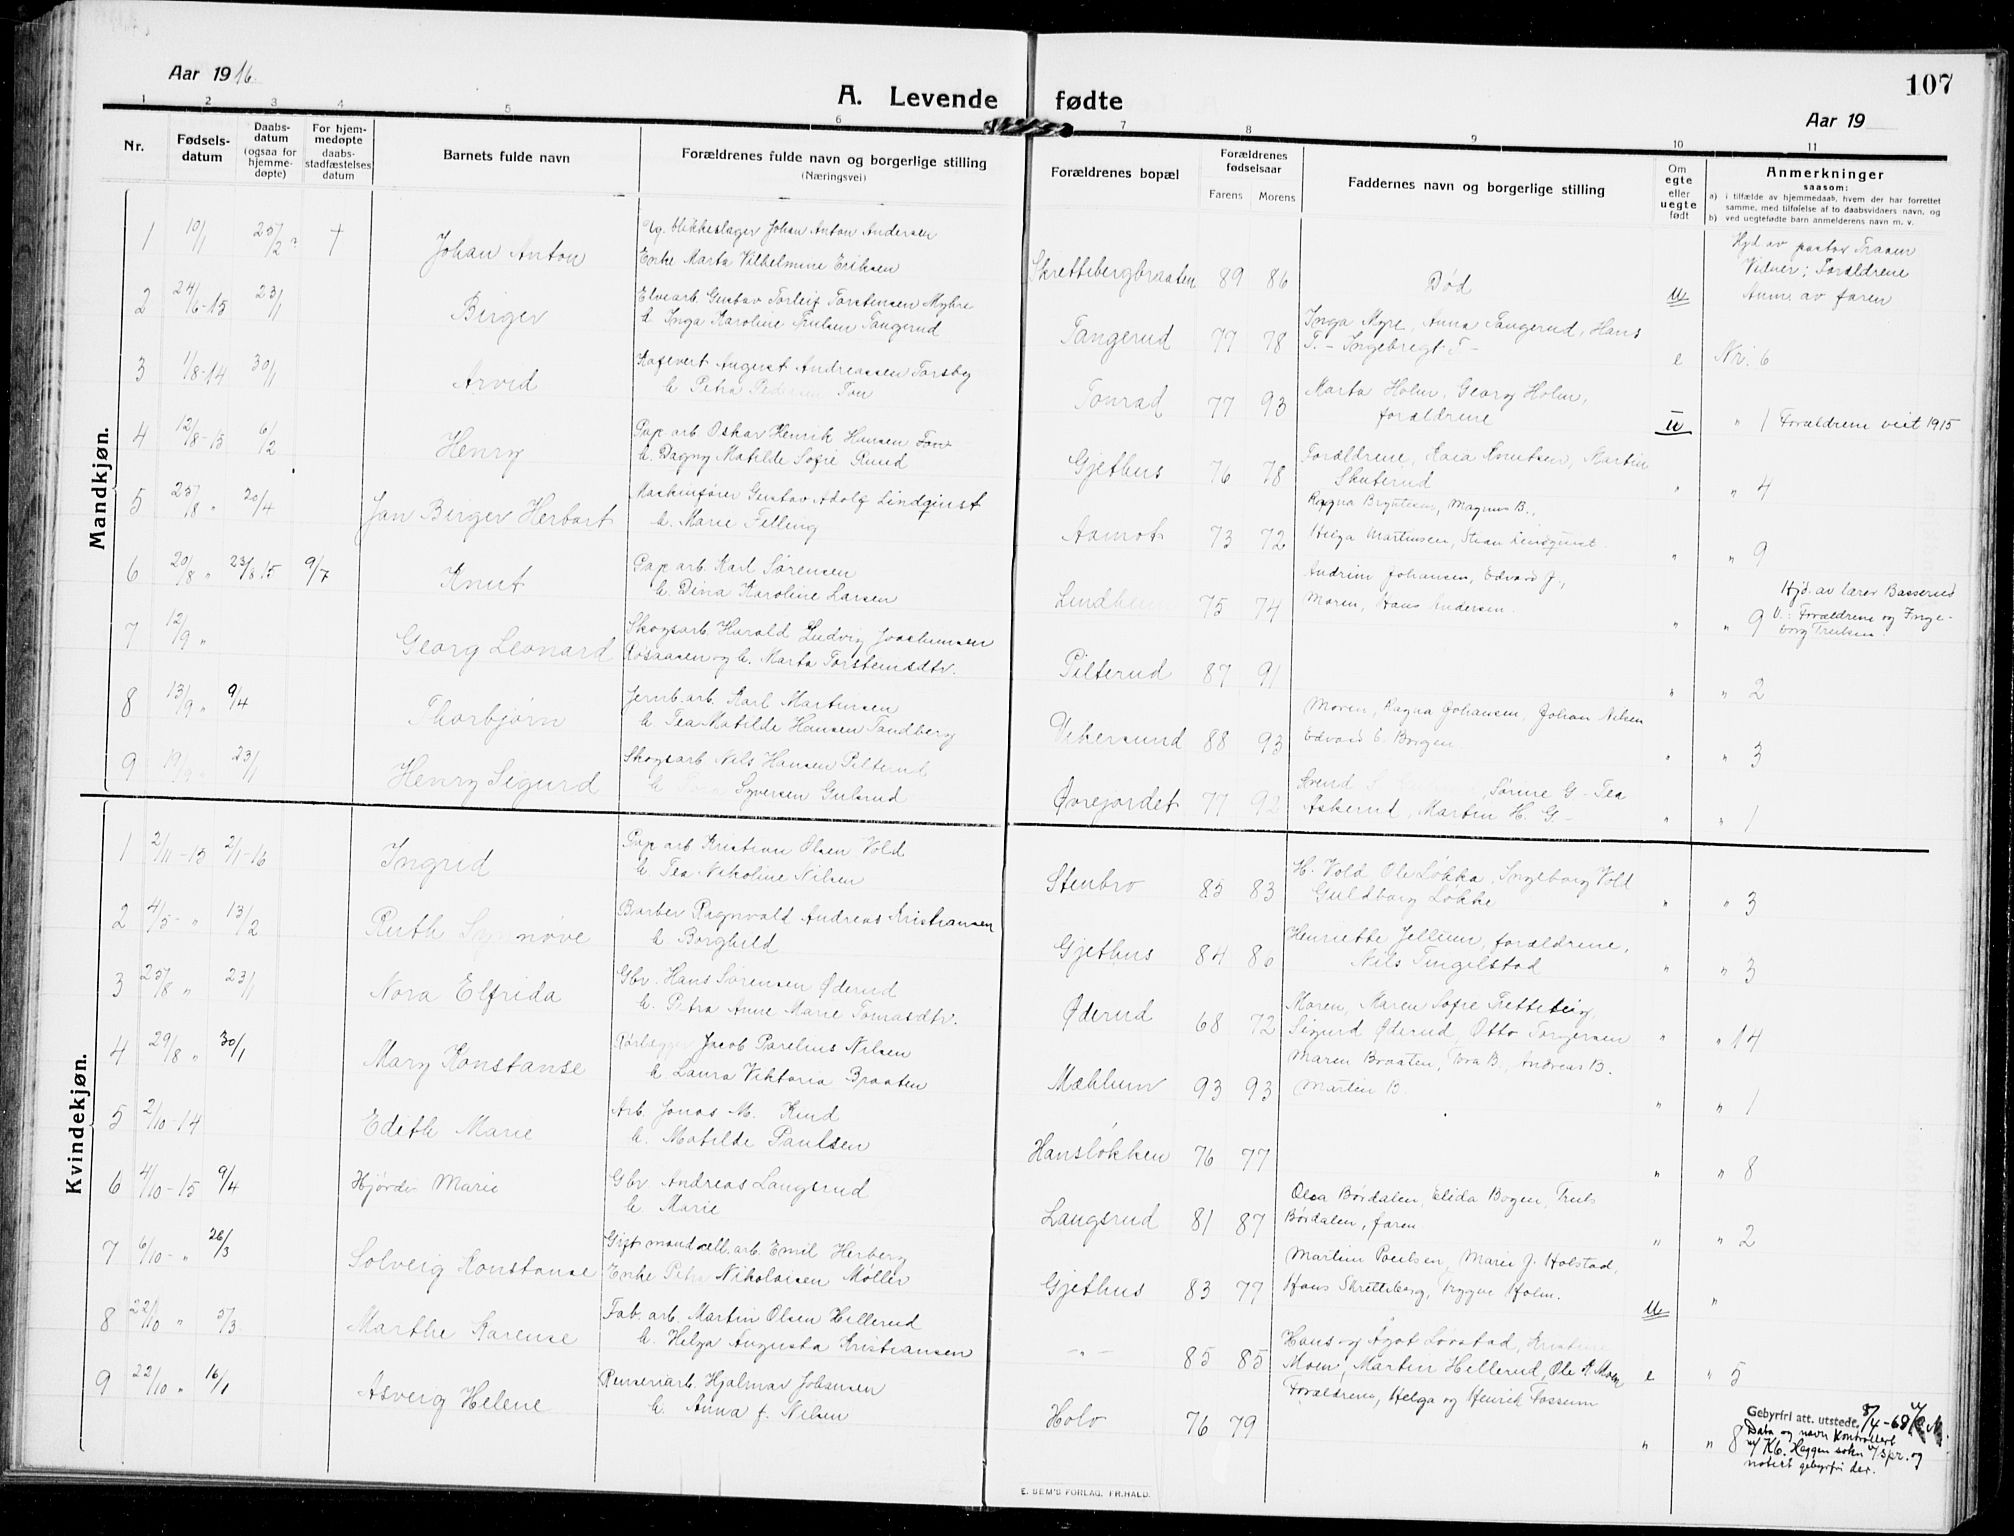 107
Aar 1916.
A. Levende fødte
Aar 19
1 2 3 4 5 6 7 8 9 10 11
Nr.
Fødsels-
datum
Daabs-
datum
(ogsaa for
hjemme-
døpte)
For hjem-
medøpte
daabs-
stadfæstelses
datum
Barnets fulde navn
Forældrenes fulde navn og borgerlige stilling
(Næringsvei)
Forældrenes bopæl
Forældrenes
fødselsaar
Farens Morens
Faddernes navn og borgerlige stilling
Om
egte
eller
uegte
født
Anmerkninger
saasom:
a) i tilfælde av hjemmedaab, hvem der har forrettet
samme, med tilføielse av to daabsvidners navn, og
b) ved uegtefødte barn anmelderens navn m. v.
Mandkjøn.
1 10/1 25/2 † Johan Anton
Ug. blikkeslager Johan Anton Andersen
Enke Marta Vilhelmine Eriksen
Skrettebergbraaten 89 86 Død u
Hjd av pastor Traaen
Vidner: Forældrene
Anm. av faren
2 24/6-15 23/1 Birger
Elvearb. Gustav Torleif Torstensen Myhre
h. Inga Karoline Trulsen Tangerud
Tangerud 77 78
Inga Myre, Anna Tangerud, Hans
T. - Ingebregt T - e Nr. 6
3 1/8-14 30/1 Arvid
August Andreassen Torsby
h. Petra Pedersen Ton
Tonrad 77 93
Marta Holm, Georg Holm,
forældrene u " 1 Forældrene viet 1915
4 12/8-15 6/2 Henry
Pap. arb. Oskar Henrik Hansen
h. Dagny Matilde Sofie Ruud
Gjethus 76 78
Forældrene, Kaia Knutsen, Martin
Skuterud " " 4
5 25/8 " 20/4 Jan Birger Herbart
Maskinfører Gustav Adolf Lindqvist
h. Marie Felling
Aamot 73 72
Ragna Bryntesen, Magnus B.,
Helga Martinsen, " " 9
6 20/8 " 23/8 15 9/7 Knut
Pap. arb. Karl Sørensen
h. Dina Karoline Larsen
Lindheim 75 74
Andrine Johansen, Edvard J.,
Moren, Hans Andersen. " " 9
Hjd. av lærer Basserud
V.: Forældrene og Inge-
borg Trulsen.
7 12/9 " Georg Leonard
Skogsarb. Harald Ludvig Joachimsen
Røsaasen og h. Marta Torsteinsdtr.
Pilterud 87 91 " " 2
8 13/9 " 9/4 Thorbjørn
Jernb. arb. Karl Martinsen
h. Tea Matilde Hansen Tandberg
Vikersund 88 93
Moren, Ragna Johansen, Johan Nilsen
Edvard E. Borgen. " " 3
9 19/9 " 23/1 Henry Sigurd
Skogsarb Nils Hansen Pilterud
h. Syversen Gulsrud
Øvrejordet 77 92
Svend Sørine G - Tea
Askerud, Martin H. G - " " 1
Kvindekjøn.
1 2/11-15 2/1-16 Ingrid
Pap arb Kristian Olsen Vold
h. Tea Nikoline Nilsen
Stenbro 85 83
H. Vold Ole Løkka, Ingeborg Vold
Guldborg Løkke " " 3
2 4/5- " 13/2 Ruth Synnøve
Barber Ragnvald Andreas Kristiansen
h. Borghild
Gjethus 84 86
Henriette Jellum, forældrene,
Nils Tingelstad " " 3
3 25/8 " 23/1 Nora Elfrida
Gbr. Hans Sørensen Øderud
h. Petra Anne Marie Tomasdtr.
Øderud 68 72
Moren, Maren Sofie Tretteteig,
Sigurd Øderud, Otto Torgersen " " 14
4 29/8 " 30/1 Mary Konstanse
Rørlægger Jacob Parelius Nilsen
h. Laura Viktoria Braaten
Mæhlum 93 93
Maren Braaten, Tora B., Andreas B.
Martin B. " " 1
5 2/10-14 Edith Marie
Arb. Jonas M. Ruud
h. Matilde Paulsen
Hansløkken 76 77 " " 8
6 4/10-15 9/4 Hjørdis Marie
Gbr. Andreas Langsrud
h. Marie
Langsrud 81 87
Olea Børdalen, Elida Bogen, Truls
Børdalen, faren " " 2
7 6/10- " 26/3 Solveig Konstanse
Gift mand cell. arb. Emil Herberg
Enke Petra Nikolaisen Møller
Gjethus 83 77
Martin Poulsen, Marie J. Holstad,
Hans Skretteberg, Trygve Holm. u "
8 22/10 " 5/3 Marthe Karense
Fab. arb. Martin Olsen Hillerud
h. Helga Augusta Kristiansen
- " - 85 85
Hans og Agot Løvstad, Kristine
Moen, Martin Hillerud, Ole A. Moen e " 5
9 22/10 " 16/1 Asveig Helene
Renseriarb. Hjalmar Johansen
h. Anna J. Nilsen
Holo 76 79
Forældrene, Helga og Henrik Fossum " " 8
Gebyrfri att. utstedt. 8/4-68
Data og navn kontrollert
v/ Kb. Heggen sokn v/ spr. og
notert gebyrfri der.
E. SEM'S FORLAG, FR.HALD.